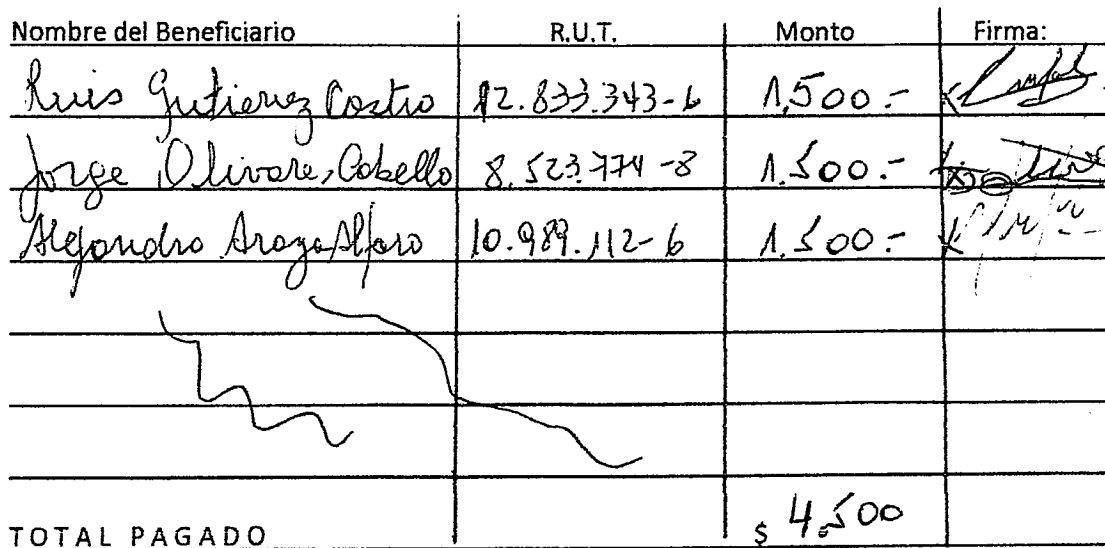 Nombre del Beneficiario R.U.T. Monto Firma:
Luis Gutierrez Castro 12.833.343-6 1.500.-
Jorge Olivares Cabello 8.523.774-8 1.500.-
Alejandro Araya Alfaro 10.989.112-6 1.500.-
TOTAL PAGADO $ 4.500